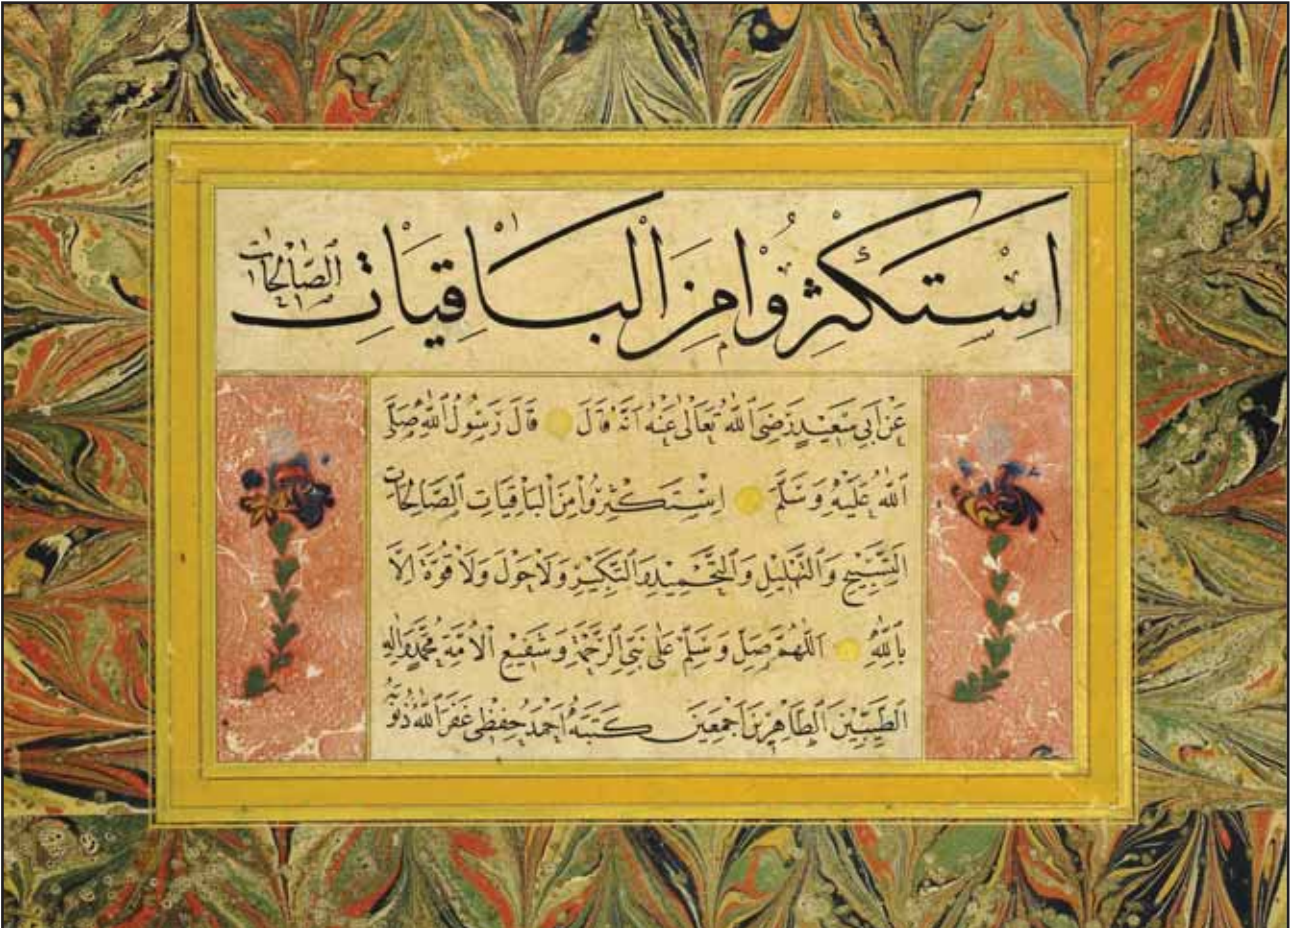 اِسْتَكْثِرُوا مِنَ الْبَاقِيَاتِ الصَّالِحَاتِ
عَنْ اَبِي سَعِيدٍ رَضِيَ اللّٰهُ تَعَالٰى عَنْهُ اَنَّهُ قَالَ قَالَ رَسُولُ اللّٰهِ صَلَّى
اللّٰهُ عَلَيْهِ وَسَلَّمَ اِسْتَكْثِرُوا مِنَ الْبَاقِيَاتِ الصَّالِحَاتِ
التَّسْبِيحِ وَالتَّهْلِيلِ وَالتَّحْمِيدِ وَالتَّكْبِيرِ وَلَا حَوْلَ وَلَا قُوَّةَ اِلَّا
بِاللّٰهِ اَللّٰهُمَّ صَلِّ وَسَلِّمْ عَلٰى نَبِيِّ الرَّحْمَةِ وَشَفِيعِ الْاُمَّةِ مُحَمَّدٍ وَاٰلِهِ
الطَّيِّبِينَ الطَّاهِرِينَ اَجْمَعِينَ كَتَبَهُ اَحْمَدُ حِفْظِي غَفَرَ اللّٰهُ ذُنُوبَهُ